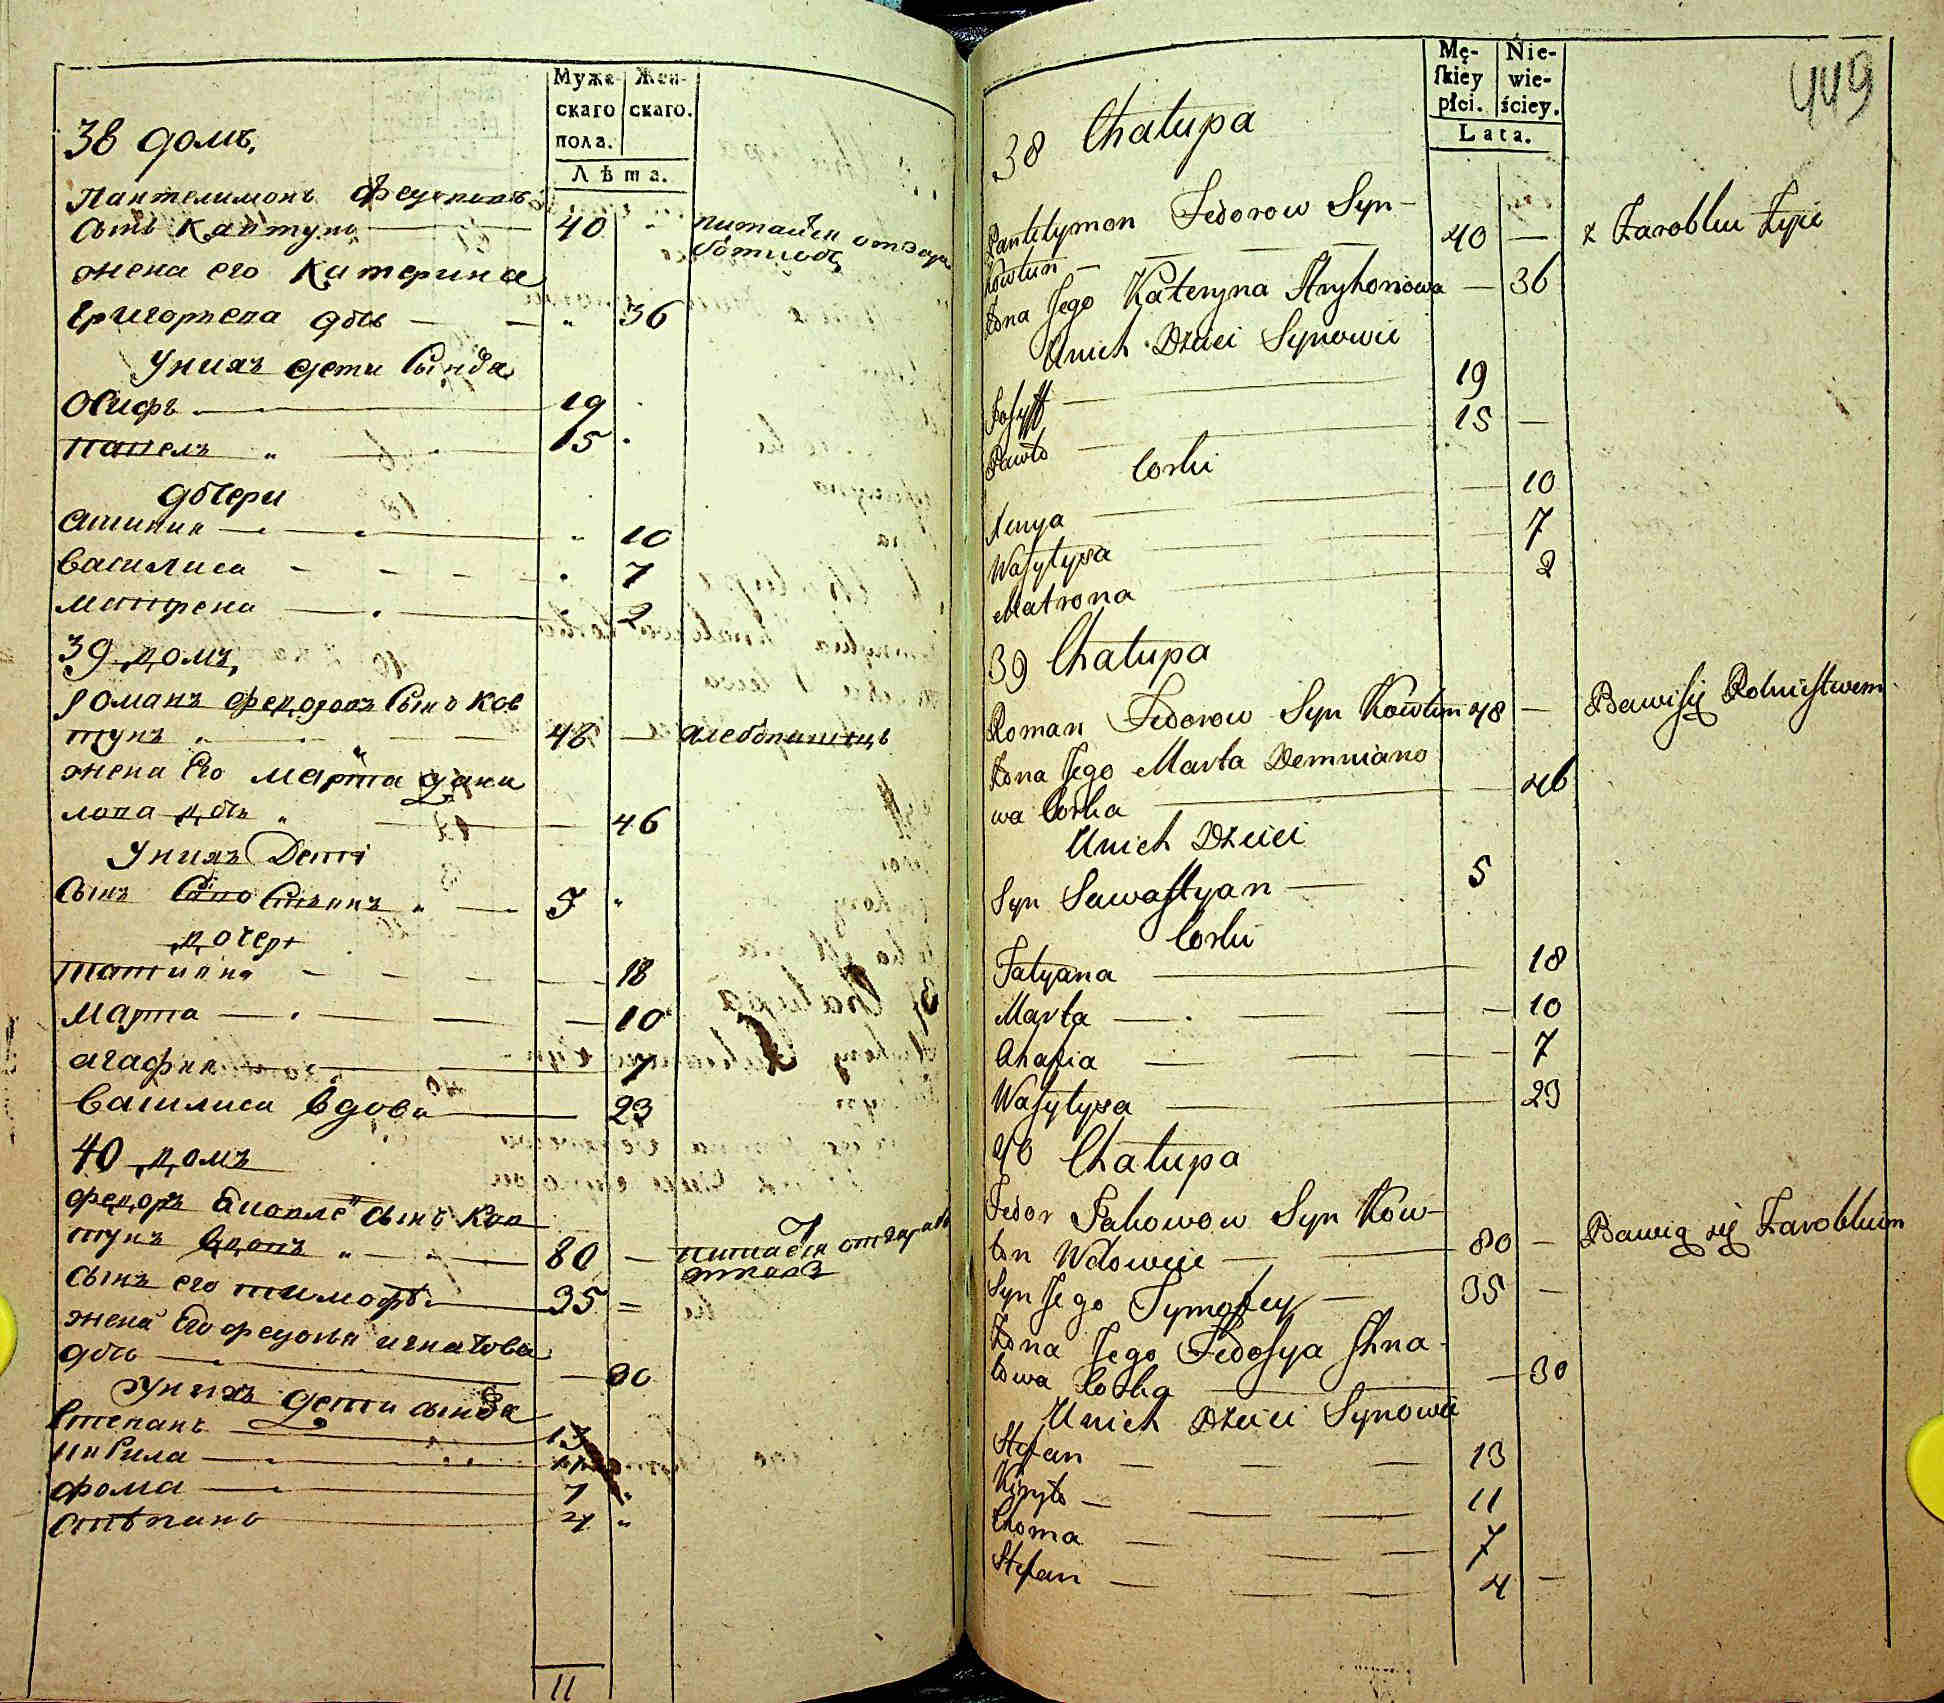 Муже-
скаго
пола.
Жен-
скаго.
Лѣта.
38 домъ,
Пантелимонъ Федоровъ
сынъ Кавтунъ 40 питается отзара
ботковъ
жена его Катерина
Григорьева дочь 36
У нихъ дети сыновя
Осифъ 19
Павелъ 15
дочери
10
Василиса 7
Матрена 2
39 домъ,
Романъ Федоровъ сынъ Ков
тунъ 48 хлебопашецъ
жена его Марта дани
лова дочь 46
У нихъ Дети
сынъ 5
дочери
Татиана 18
Марта 10
Агафия 7
Василиса вдова 23
40 домъ
Федоръ сынъ Ков
тунъ вдовъ 80 питается отзарабо
сынъ его Тимофей 35
жена его Федосия Игнатова
дочь 30
У нихъ дети сыновя
Степанъ 13
Кирила 11
Фома 7
Степанъ 4
11
Mę-
ſkiey
płci.
Nie-
wie-
ściey.
Lata.
449
38 Chałupa
Pantelymon Fedorow Syn
Kowtun 40 z Zarobku żyie
Żona Jego Kateryna Hryhorowa 36
U nich Dzieci Synowie
Josyff 19
Pawło 15
Corki
Xenya 10
Wasylysa 7
Matrona 2
39 Chałupa
Roman Fedorow Syn Kowtun 48 Bawi się Rolnictwem
Żona Jego Marta Demniano
wa Corka 46
U nich Dzieci
Syn Sawastyan 5
Corki
Tatyana 18
Marta 10
Ahafia 7
Wasylysa 23
40 Chałupa
Fedor Jakowow Syn Kow-
tun Wdowiec 80 Bawią się Zarobkiem
Syn Jego Tymofey 35
Żona Jego Fedosya Ihna-
towa Corka 30
U nich Dzieci Synowie
Stefan 13
Kiryło 11
Choma 7
Stefan 4